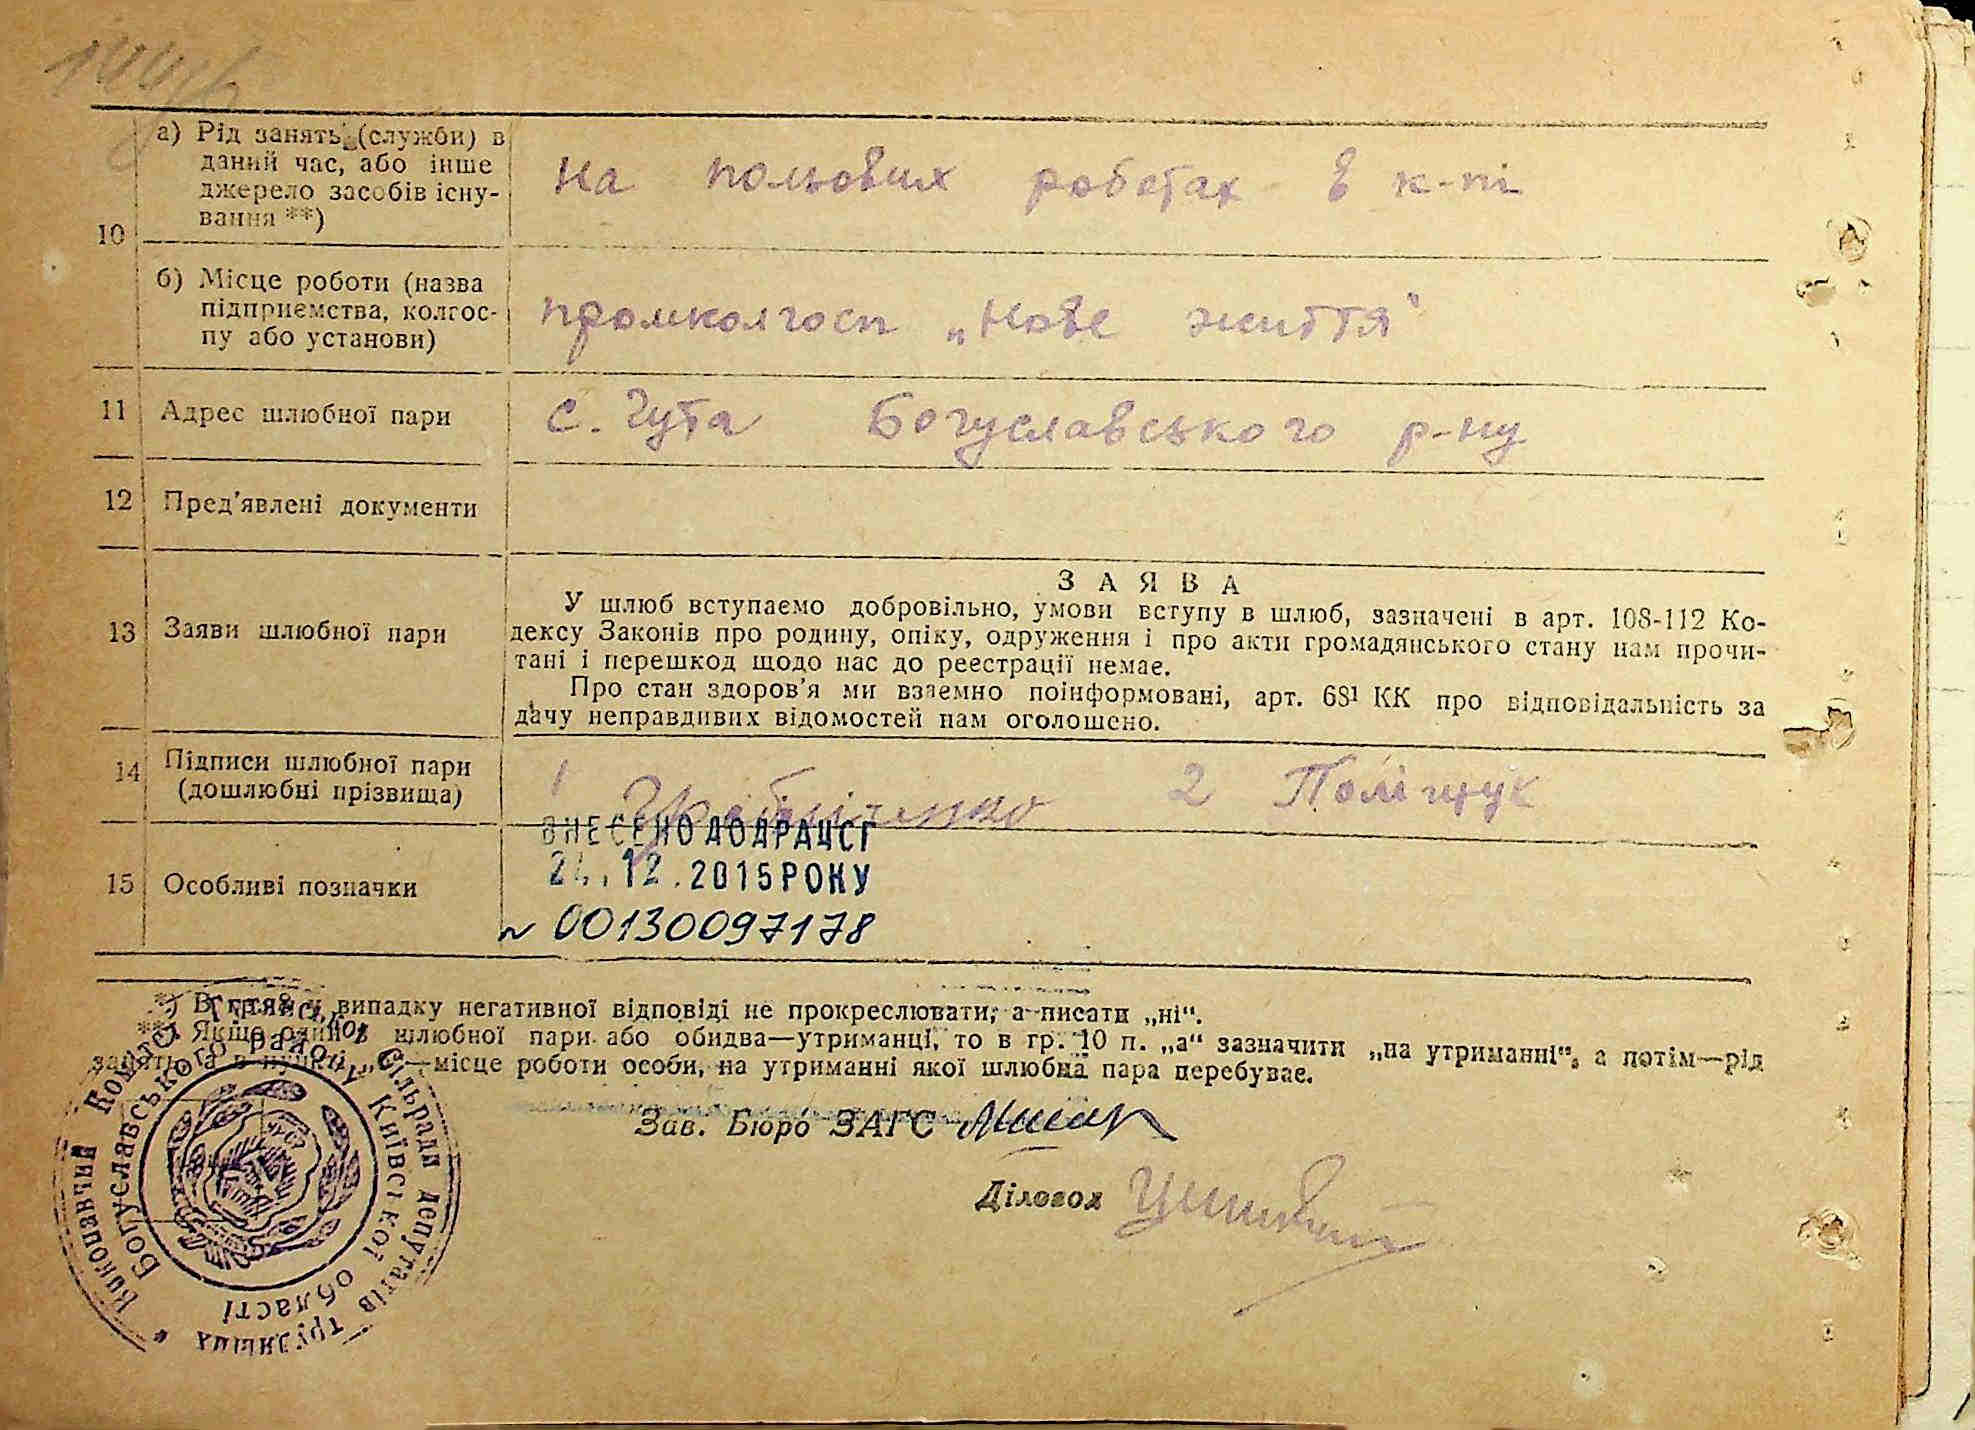 10
а) Рід занять (служби) в
даний час, або інше
джерело засобів існу-
вання **)
на польових роботах в к-пі
б) Місце роботи (назва
підприємства, колгос-
пу або установи)
промколгосп „Нове життя"
11 Адрес шлюбної пари
с. Гута Богуславського р-ну
12 Пред'явлені документи
13 Заяви шлюбної пари
ЗАЯВА
У шлюб вступаємо добровільно, умови вступу в шлюб, зазначені в арт. 108-112 Ко-
дексу Законів про родину, опіку, одруження і про акти громадянського стану нам прочи-
тані і перешкод щодо нас до реєстрації немає.
Про стан здоров'я ми взаємно поінформовані, арт. 68¹ КК про відповідальність за
дачу неправдивих відомостей нам оголошено.
14 Підписи шлюбної пари
(дошлюбні прізвища)
1 2 Поліщук
15 Особливі позначки
ВНЕСЕНО ДО ДРАЦСГ
.12.2015 РОКУ
№ 00130097178
*) В гр. випадку негативної відповіді не прокреслювати, а писати „ні“.
**) Якщо один з шлюбної пари або обидва—утриманці, то в гр. 10 п. „а“ зазначити „на утриманні“, а потім—рід
занять, а в пункті „б“—місце роботи особи, на утриманні якої шлюбна пара перебуває.
Зав. Бюро ЗАГС
Діловод
Виконавчий Комітет сільради депутатів трудящих
Богуславського району Київської області